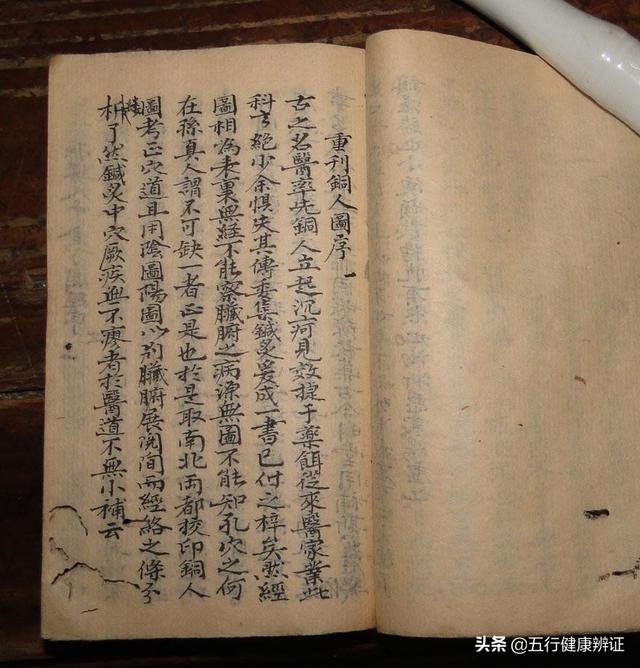 重刊銅人圖序
古之名醫率先銅人立起沉疴見效捷于藥餌從來醫家業此
科者絕少余惧失其傳委集鍼灸爰成一書已付之梓矣然經
圖相為表裏無經不能察臟腑之病源無圖不能知孔穴之何
在孫真人謂不可缺一者正是也於是取南北两都挍印銅人
圖考正穴道且用陰圖陽圖以別臟腑展閱間而經絡之條分
縷析了然鍼灸中穴厥疾無不瘳者於醫道不無小補云
头条 @五行健康辨证